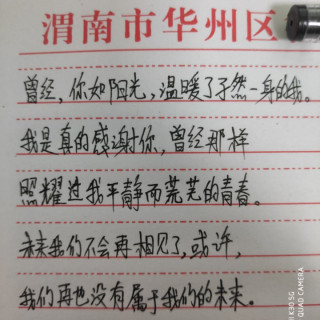 渭南市华州区
曾经，你如阳光，温暖了孑然一身的我。
我是真的感谢你，曾经那样
照耀过我平静而荒芜的青春。
未来我们不会再相见了，或许，
我们再也没有属于我们的未来。
K30 5G
QUAD CAMERA